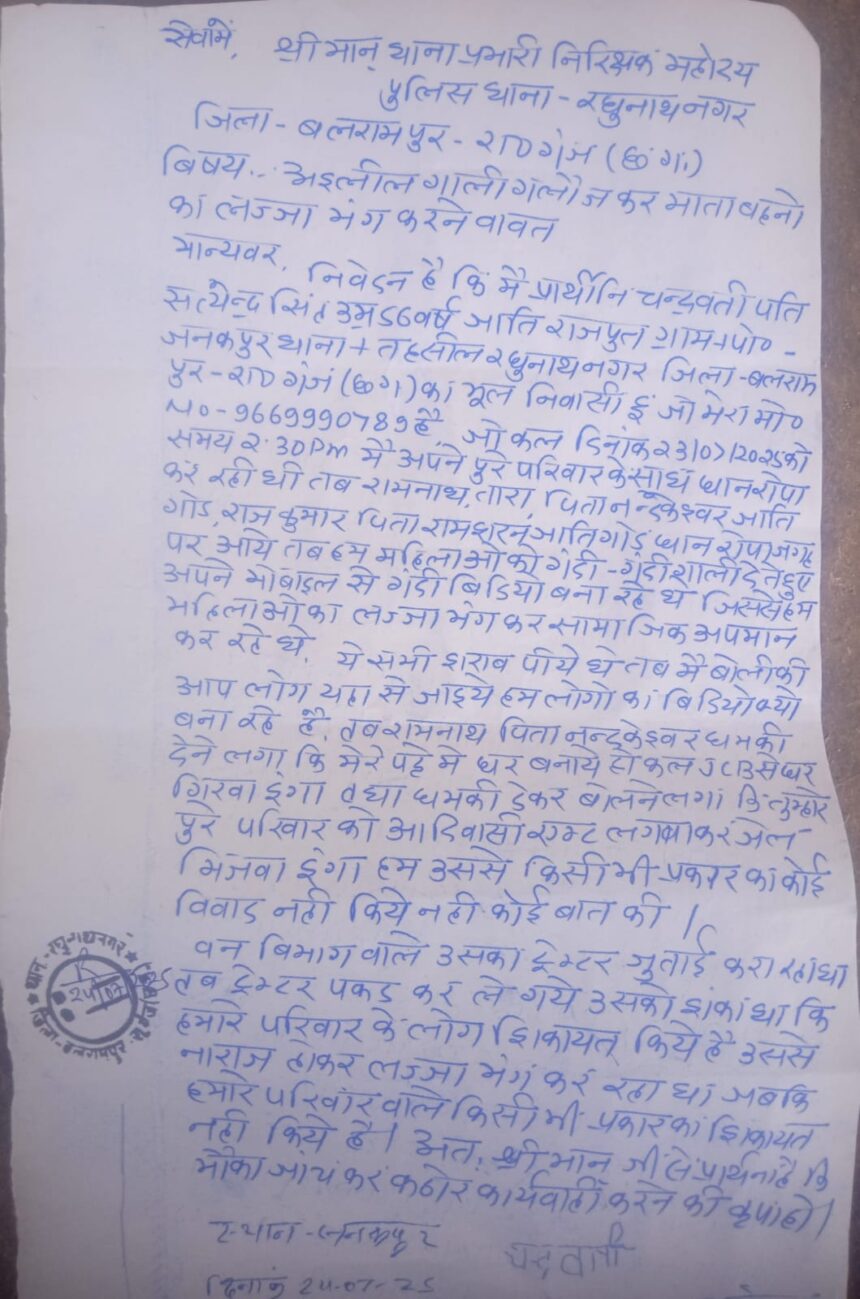 सेवामें,
श्रीमान् थाना प्रभारी निरिक्षक महोदय
पुलिस थाना - रघुनाथनगर
जिला - बलरामपुर - रा०गंज (छ०ग०)
बिषय.. अश्लील गाली गलौज कर माता बहनो
का लज्जा भंग करने वावत
मान्यवर,
निवेदन है कि मै प्रार्थीनि चन्द्रवती पति
सत्येन्द्र सिंह उम्र 56 वर्ष जाति राजपुत ग्राम+पो० -
जनकपुर थाना + तहसील रघुनाथनगर जिला - बलराम
पुर - रा०गंज (छ०ग) का मूल निवासी हूं जो मेरा मो०
No - 9669990789 है, जो कल दिनांक 23/07/2025 को
समय 2:30 Pm मै अपने पुरे परिवार के साथ धान रोपा
कर रही थी तब रामनाथ, तारा, पिता नन्द्केश्वर जाति
गोड, राजकुमार पिता रामशरन जाति गोड़ धान रोपा जगह
पर आये तब हम महिलाओ को गंदी - गंदी गाली देते हुए
अपने मोबाइल से गंदी बिडियो बना रहे थे जिससे हम
महिलाओ का लज्जा भंग कर सामाजिक अपमान
कर रहे थे, ये सभी शराब पीये थे तब मै बोली की
आप लोग यहा से जाइये हम लोगो का बिडियो क्यो
बना रहे है, तब रामनाथ पिता नन्द्केश्वर धमकी
देने लगा कि मेरे पट्टे मे घर बनाये हो कल JCB से घर
गिरवा दुंगा तथा धमकी देकर बोलने लगा कि तुम्हारे
पुरे परिवार को आदिवासी एक्ट लगबा कर जेल
भिजवा दुंगा हम उससे किसी भी प्रकार का कोई
विवाद नही किये नही कोई बात की |
वन बिभाग वाले उसका ट्रेक्टर जुताई करा रहा था
तब ट्रेक्टर पकड कर ले गये उसको शंका था कि
हमारे परिवार के लोग शिकायत किये है उससे
नाराज होकर लज्जा भंग कर रहा था जबकि
हमारे परिवार वाले किसी भी प्रकार का शिकायत
नही किये है| अत, श्रीमान जी से प्रार्थना है कि
मौका जांच कर कठोर कार्यवाही करने की कृपा हो|
स्थान - जनकपुर
चन्द्रवती
दिनांक 24-07-25
थाना - रघुनाथनगर
24/07/25
जिला - बलरामपुर